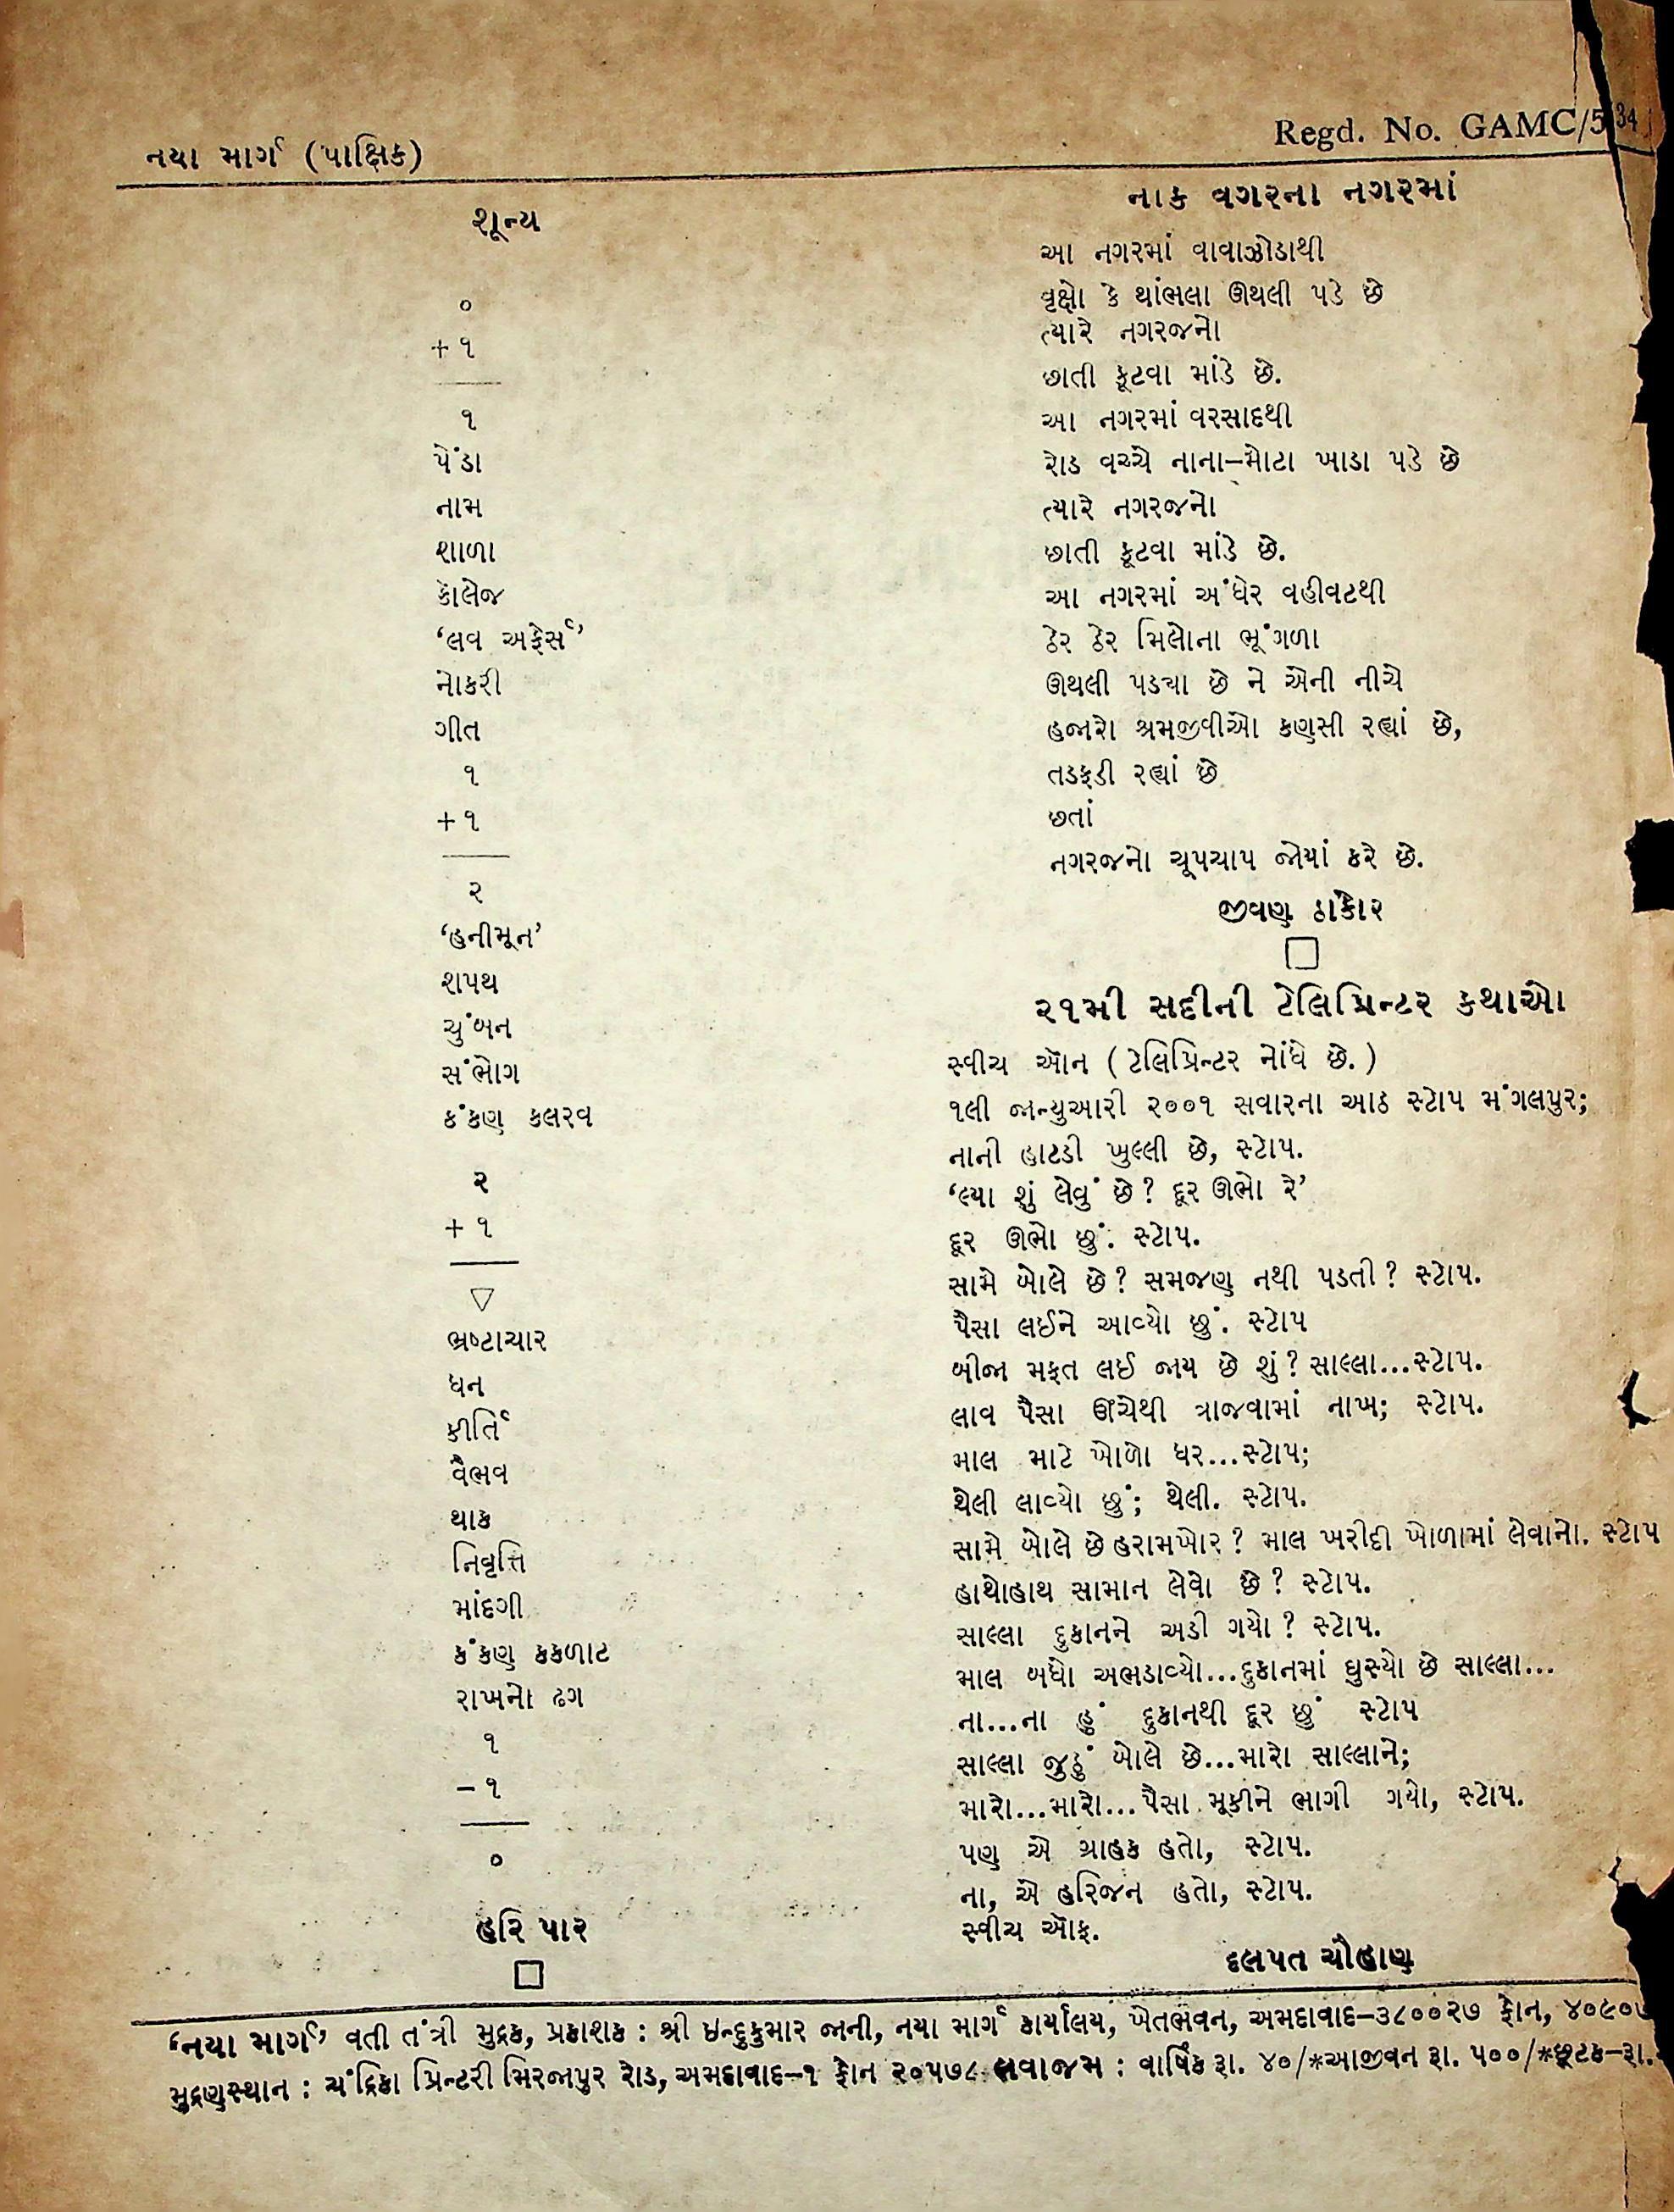 નયા માર્ગ (પાક્ષિક)
Regd. No. GAMC/534
શૂન્ય
૦
+ ૧
૧
પેંડા
નામ
શાળા
કૉલેજ
‘લવ અફેર્સ’
નોકરી
ગીત
૧
+ ૧
૨
‘હનીમૂન’
શપથ
ચુંબન
સંભોગ
કંકણ કલરવ
૨
+ ૧
▽
ભ્રષ્ટાચાર
ધન
કીર્તિ
વૈભવ
થાક
નિવૃત્તિ
માંદગી
કંકણ કકળાટ
રાખનો ઢગ
૧
– ૧
૦
હરિ પાર
નાક વગરના નગરમાં
આ નગરમાં વાવાઝોડાથી
વૃક્ષો કે થાંભલા ઊથલી પડે છે
ત્યારે નગરજનો
છાતી કૂટવા માંડે છે.
આ નગરમાં વરસાદથી
રોડ વચ્ચે નાના–મોટા ખાડા પડે છે
ત્યારે નગરજનો
છાતી કૂટવા માંડે છે.
આ નગરમાં અંધેર વહીવટથી
ઠેર ઠેર મિલોના ભૂંગળા
ઊથલી પડ્યા છે ને એની નીચે
હજારો શ્રમજીવીઓ કણસી રહ્યાં છે,
તડફડી રહ્યાં છે
છતાં
નગરજનો ચૂપચાપ જોયાં કરે છે.
જીવણ ઠાકોર
૨૧મી સદીની ટેલિપ્રિન્ટર કથાઓ
સ્વીચ ઑન ( ટેલિપ્રિન્ટર નોંધે છે. )
૧લી જાન્યુઆરી ૨૦૦૧ સવારના આઠ સ્ટોપ મંગલપુર;
નાની હાટડી ખુલ્લી છે, સ્ટોપ.
‘લ્યા શું લેવું છે? દૂર ઊભો રે’
દૂર ઊભો છું. સ્ટોપ.
સામે બોલે છે? સમજણ નથી પડતી? સ્ટોપ.
પૈસા લઈને આવ્યો છું. સ્ટોપ
બીજા મફત લઈ જાય છે શું? સાલ્લા...સ્ટોપ.
લાવ પૈસા ઊંચેથી ત્રાજવામાં નાખ; સ્ટોપ.
માલ માટે ખોળો ધર...સ્ટોપ;
થેલી લાવ્યો છું; થેલી. સ્ટોપ.
સામે બોલે છે હરામખોર? માલ ખરીદી ખોળામાં લેવાનો. સ્ટોપ
હાથોહાથ સામાન લેવો છે? સ્ટોપ.
સાલ્લા દુકાનને અડી ગયો? સ્ટોપ.
માલ બધો અભડાવ્યો...દુકાનમાં ઘુસ્યો છે સાલ્લા...
ના...ના હું દુકાનથી દૂર છું સ્ટોપ
સાલ્લા જુઠું બોલે છે...મારો સાલ્લાને;
મારો...મારો...પૈસા મૂકીને ભાગી ગયો, સ્ટોપ.
પણ એ ગ્રાહક હતો, સ્ટોપ.
ના, એ હરિજન હતો, સ્ટોપ.
સ્વીચ ઑફ.
દલપત ચૌહાણ
‘નયા માર્ગ’ વતી તંત્રી મુદ્રક, પ્રકાશક : શ્રી ઇન્દુકુમાર જાની, નયા માર્ગ કાર્યાલય, ખેતભવન, અમદાવાદ–૩૮૦૦૨૭ ફોન,
મુદ્રણસ્થાન : ચંદ્રિકા પ્રિન્ટરી મિરજાપુર રોડ, અમદાવાદ–૧ ફોન ૨૦૫૭૮ લવાજમ : વાર્ષિક રૂા. ૪૦/*આજીવન રૂા. ૫૦૦/*છૂટક–રૂા.